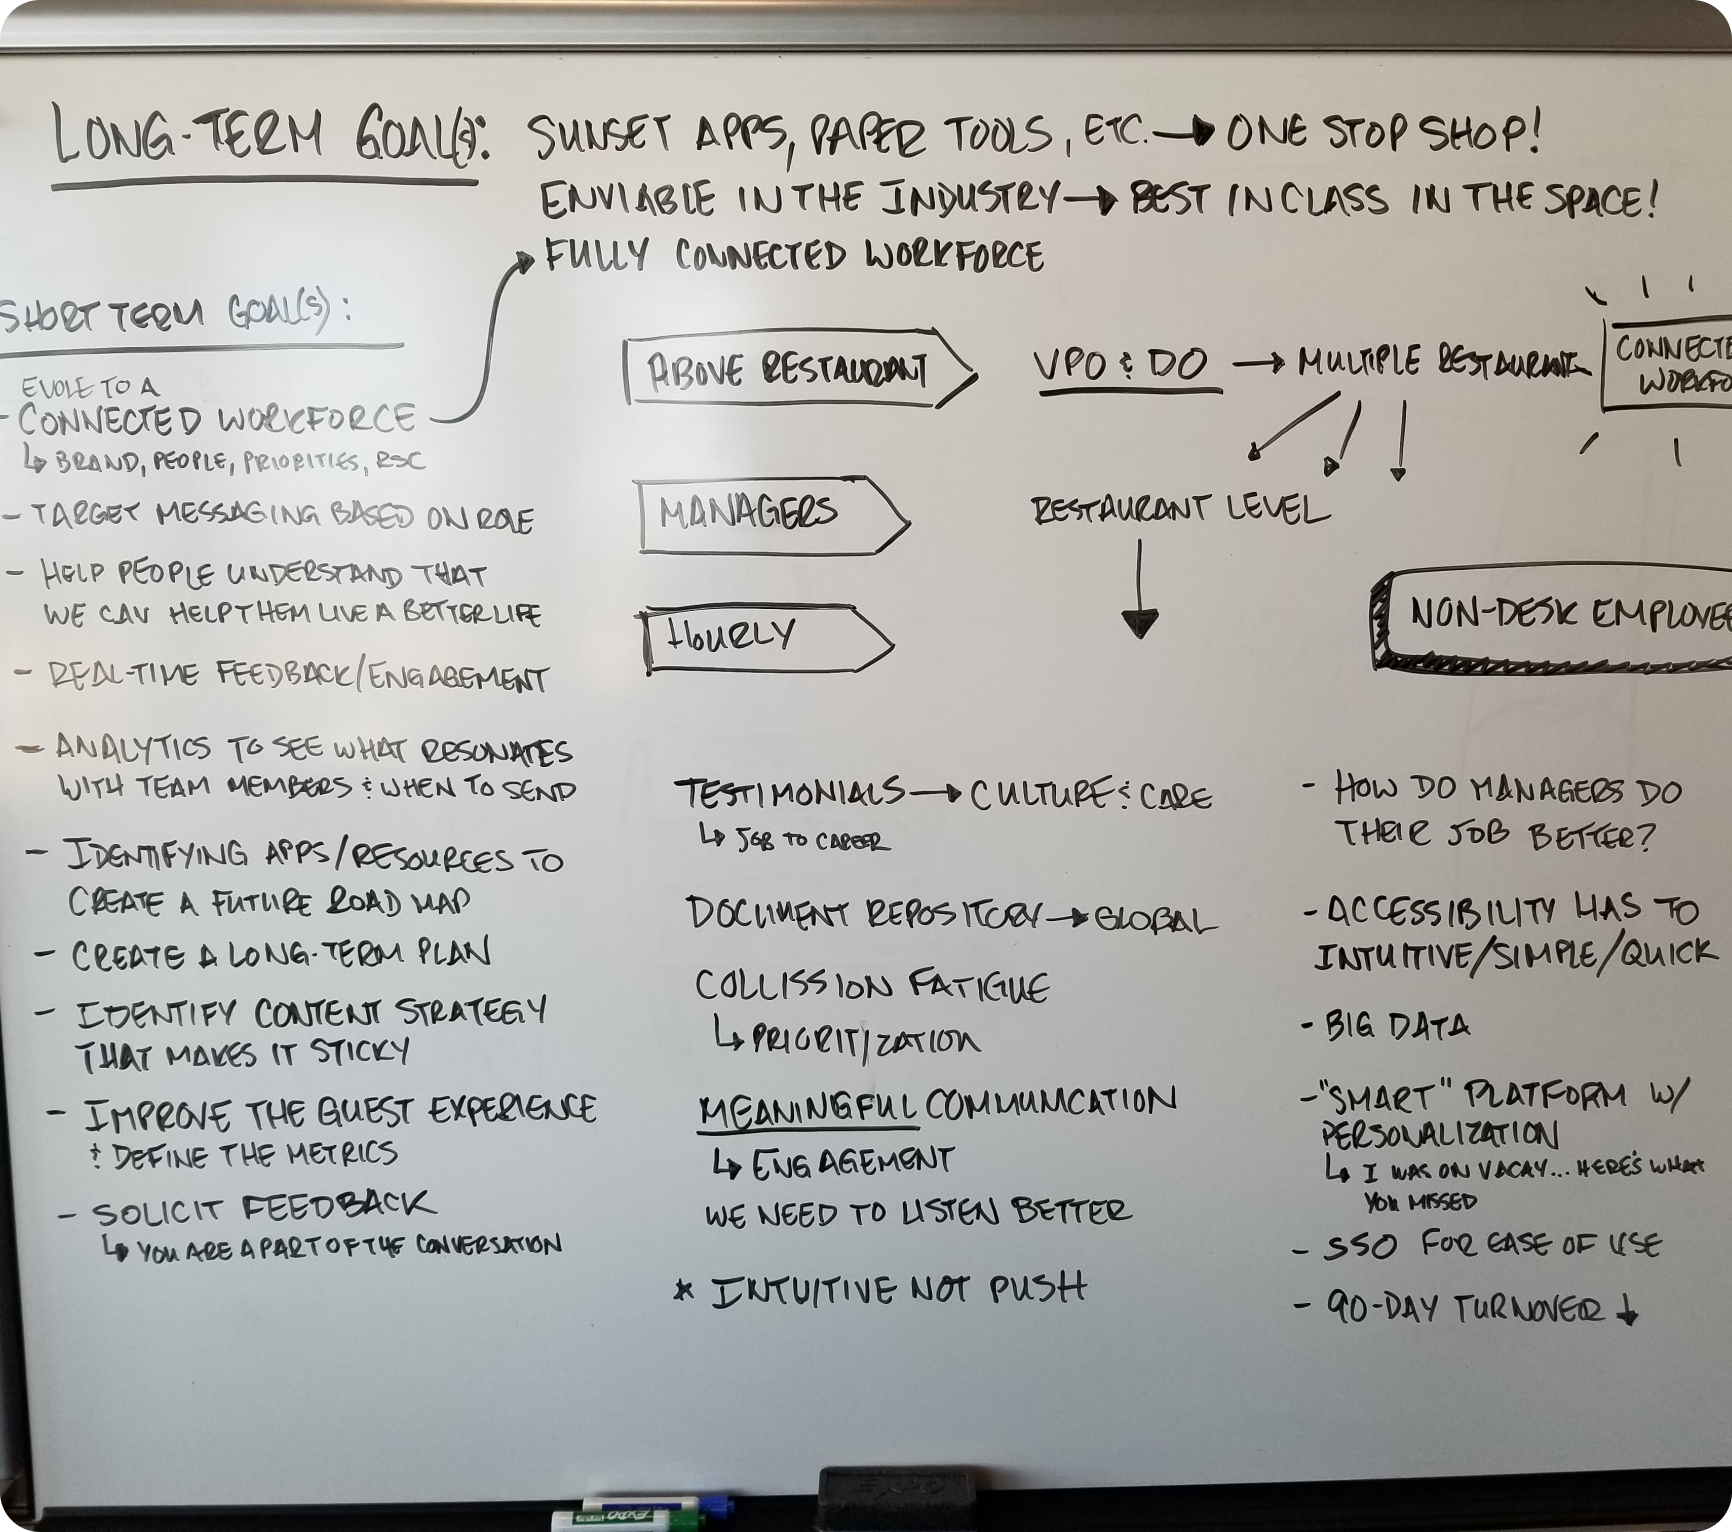 LONG-TERM GOAL(S): SUNSET APPS, PAPER TOOLS, ETC. → ONE STOP SHOP!
ENVIABLE IN THE INDUSTRY → BEST IN CLASS IN THE SPACE!
FULLY CONNECTED WORKFORCE
SHORT TERM GOAL(S):
EVOLE TO A
- CONNECTED WORKFORCE
↳ BRAND, PEOPLE, PRIORITIES, RSC
- TARGET MESSAGING BASED ON ROLE
- HELP PEOPLE UNDERSTAND THAT
WE CAN HELP THEM LIVE A BETTER LIFE
- REAL-TIME FEEDBACK/ENGAGEMENT
- ANALYTICS TO SEE WHAT RESONATES
WITH TEAM MEMBERS & WHEN TO SEND
- IDENTIFYING APPS/RESOURCES TO
CREATE A FUTURE ROAD MAP
- CREATE A LONG-TERM PLAN
- IDENTIFY CONTENT STRATEGY
THAT MAKES IT STICKY
- IMPROVE THE GUEST EXPERIENCE
& DEFINE THE METRICS
- SOLICIT FEEDBACK
↳ YOU ARE A PART OF THE CONVERSATION
ABOVE RESTAURANT
VPO & DO → MULTIPLE RESTAURANTS
CONNECTE
WORKFO
MANAGERS
RESTAURANT LEVEL
HOURLY
NON-DESK EMPLOYEE
TESTIMONIALS → CULTURE & CARE
↳ JOB TO CAREER
DOCUMENT REPOSITORY → GLOBAL
COLLISSION FATIGUE
↳ PRIORITIZATION
MEANINGFUL COMMUNICATION
↳ ENGAGEMENT
WE NEED TO LISTEN BETTER
* INTUITIVE NOT PUSH
- HOW DO MANAGERS DO
THEIR JOB BETTER?
- ACCESSIBILITY HAS TO
INTUITIVE/SIMPLE/QUICK
- BIG DATA
- "SMART" PLATFORM W/
PERSONALIZATION
↳ I WAS ON VACAY... HERE'S WHAT
YOU MISSED
- SSO FOR EASE OF USE
- 90-DAY TURNOVER ↓
EXPO
EXPO